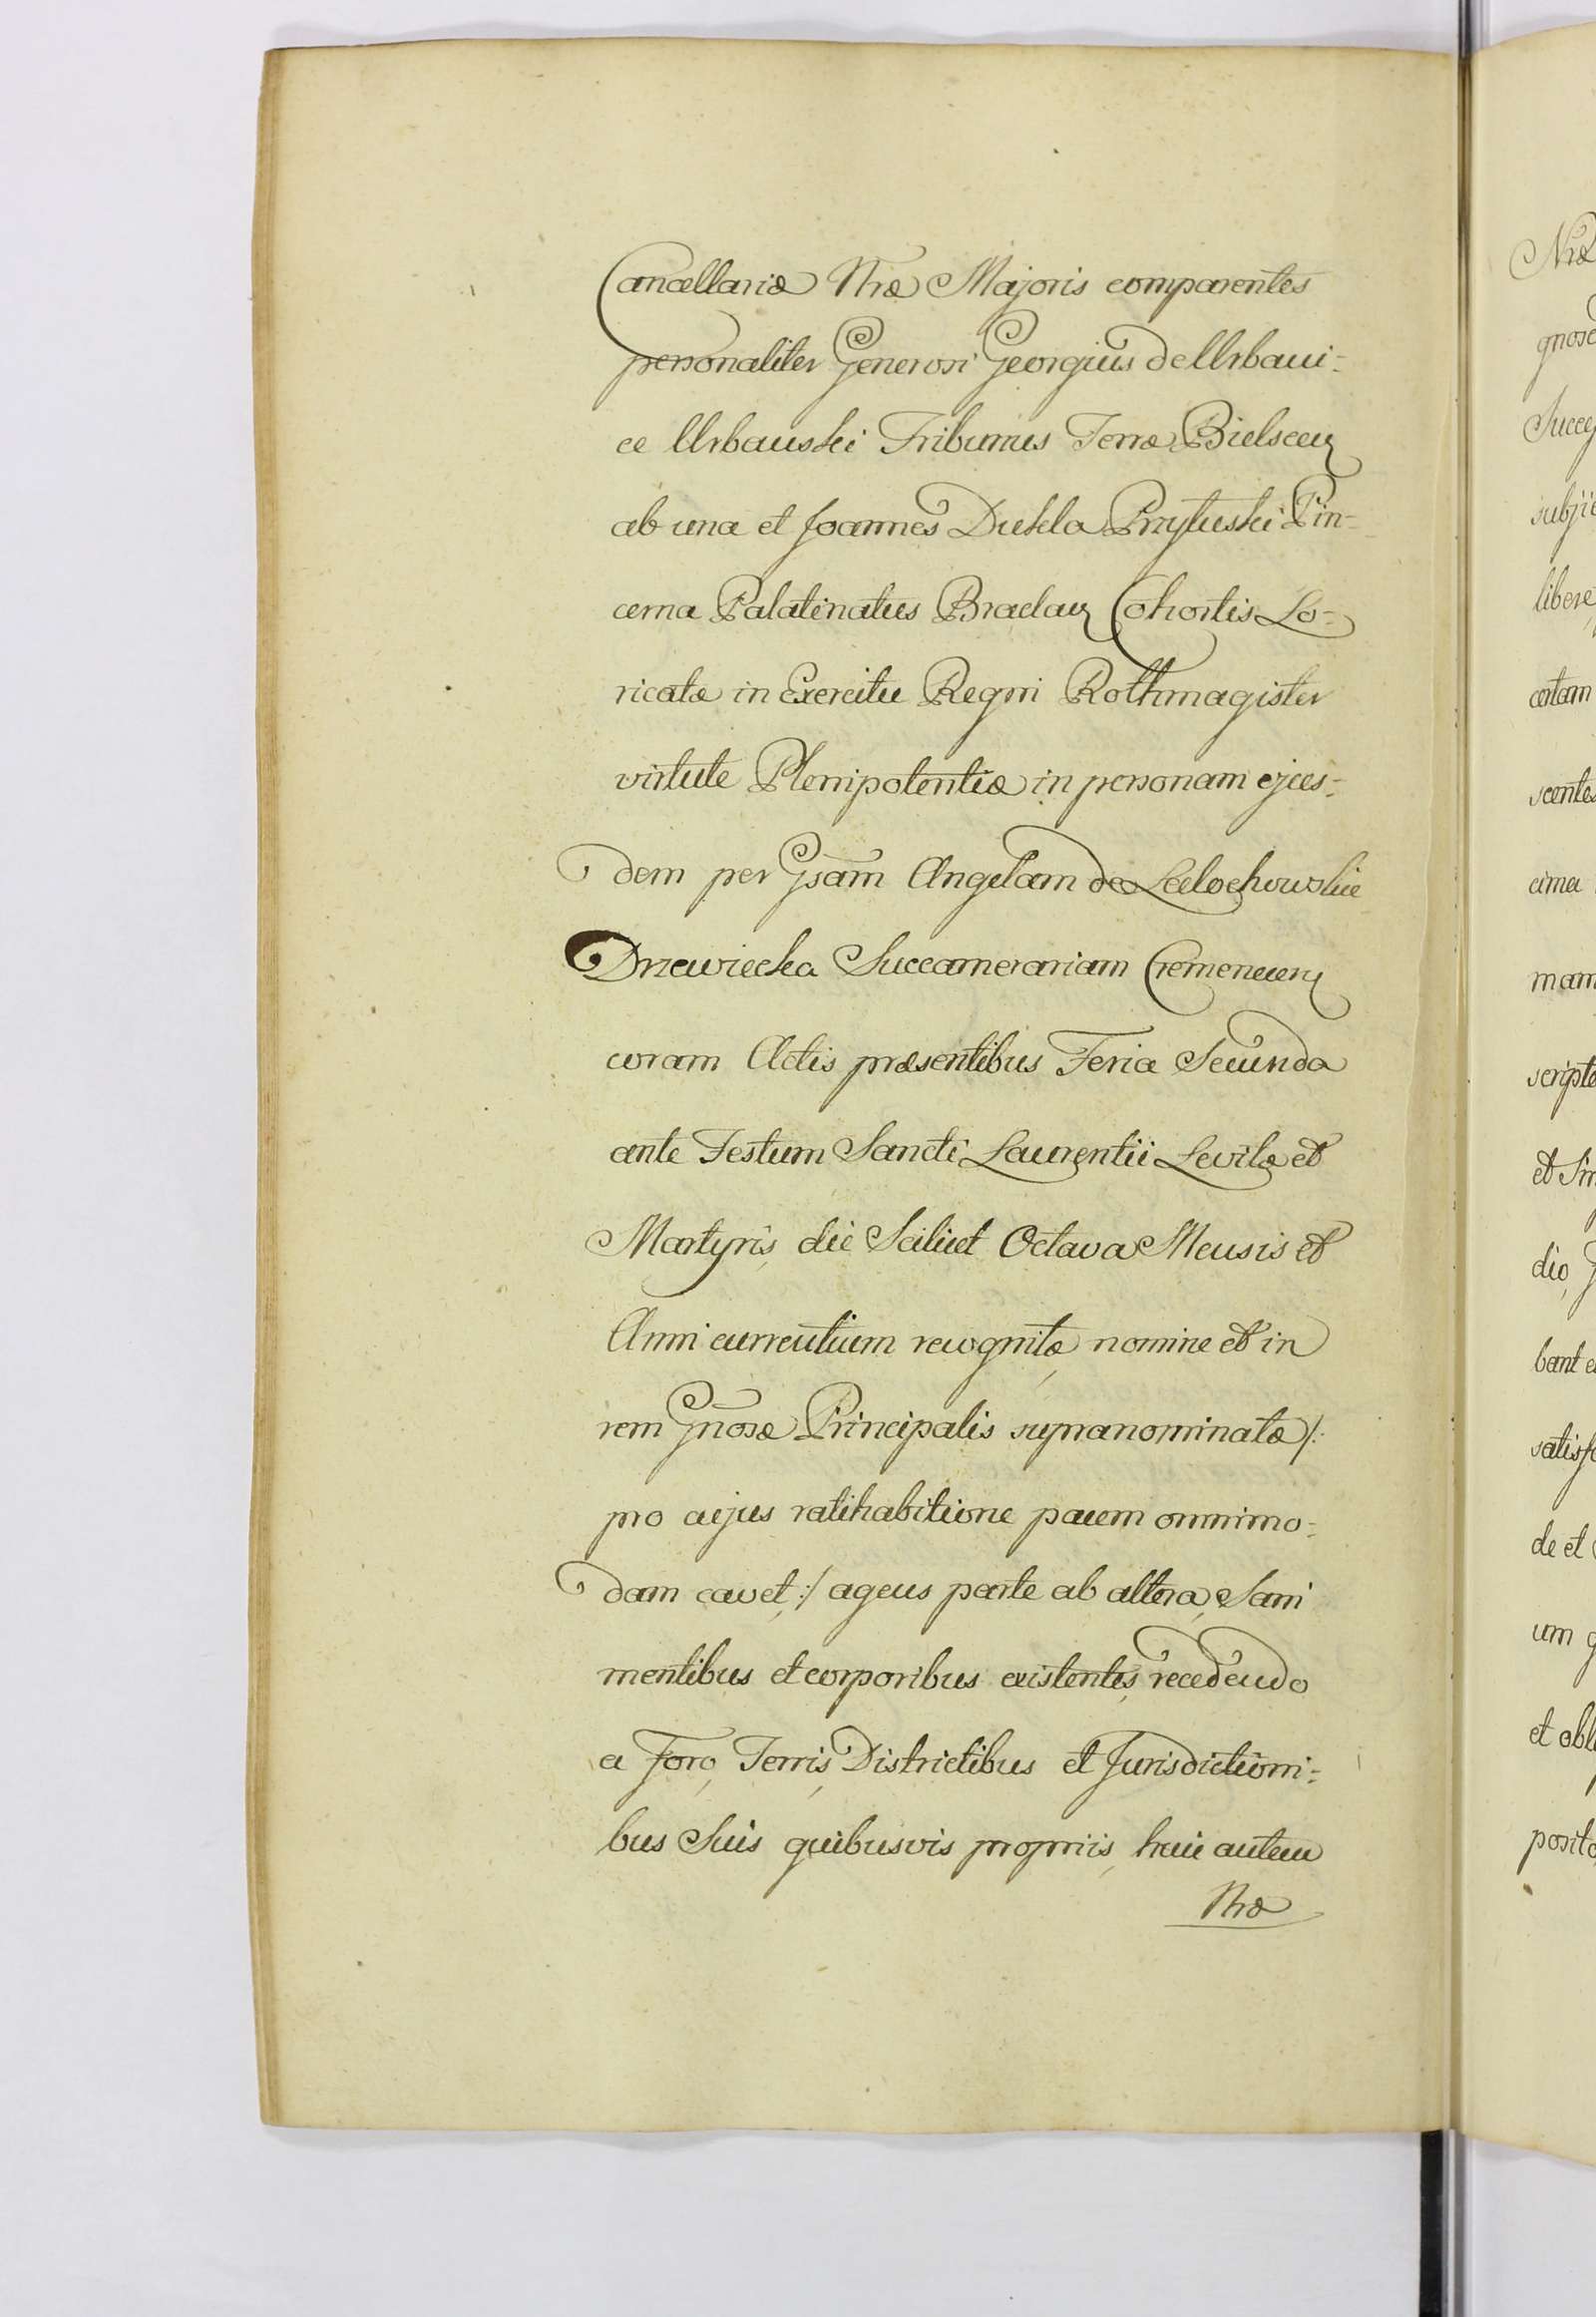 Cancellariæ Nræ Majoris comparentes
personaliter Generosi Georgius de Urbani-
ce Urbański Tribunus Terræ Bielscen
ab una et Joannes Dukla Przyłuski Pin-
cerna Palatinatus Braclav Cohortis Lo-
ricatæ in Exercitu Regni Rothmagister
virtute Plenipotentiæ in personam ejus-
dem per Gsam Angelam de
Drzewiecka Succamerariam Cremenecen
coram Actis præsentibus Feria Secunda
ante Festum Sancti Laurentii Levitæ et
Martyris, die Scilicet Octava Mensis et
Anni currentium recognitæ, nomine et in
rem Gnosæ Principalis supranominatæ /:
pro cujus ratihabitione pacem omnimo-
dam cavet, :/ agens parte ab altera, Sani
mentibus et corporibus existentes, recedendo
a Foro, Terris, Districtibus et Jurisdictioni-
bus Suis quibusvis propriis, huic autem
Nræ
Næ
Succ
subji
libere
certam
scentes
cima
mam
script
et Sm
dio,
bant e
satisf
de et
um
et obl
posito